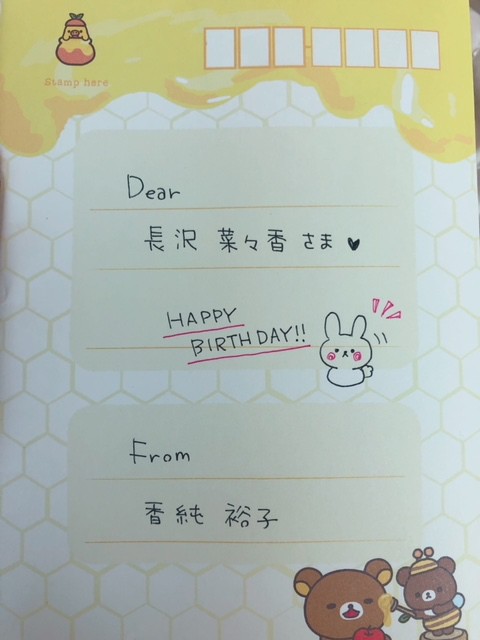 Stamp here
Dear
長沢 菜々香 さま♥
HAPPY
BIRTHDAY!!
From
香純 裕子